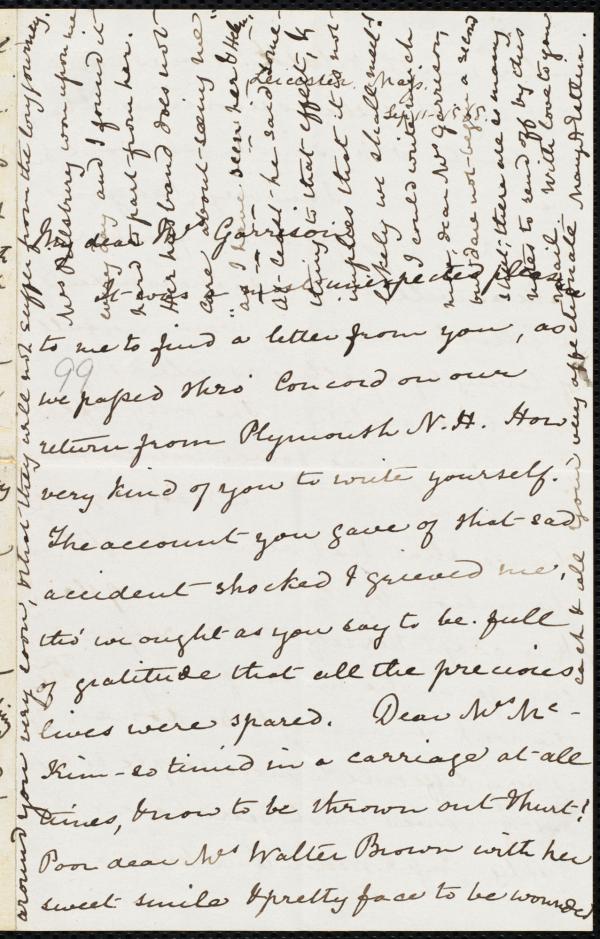 Leicester, Mass.
Sep. 11-1868.
My dear Mr. Garrison,
It was a most unexpected pleasure
to me to find a letter from you, as
we passed thro' Concord on our
return from Plymouth N.H. How
very kind of you to write yourself.
The account you gave of that sad
accident shocked & grieved me,
tho' we ought as you say to be full
of gratitude that all the precious
lives were spared. Dear Mrs. Mc-
Kim - so timid in a carriage at all
times, & now to be thrown out & hurt!
Poor dear Mrs Walter Brown with her
sweet smile & pretty face to be wounded
99
around you very soon, & that they will not suffer from the long journey.
Mrs Pillsbury won upon me
every day and I found it
hard to part from her.
Her husband does not
care about seeing me
"as I have seen her & Helen,
at least he said some-
thing to that effect, &
implies that it is not
likely we shall meet!
I could write much
more, dear Mr Garrison,
but dare not begin a second
sheet; there are so many
notes to send off by this
mail. With love to you
each & all your very affectionate Mary A. Estlin.